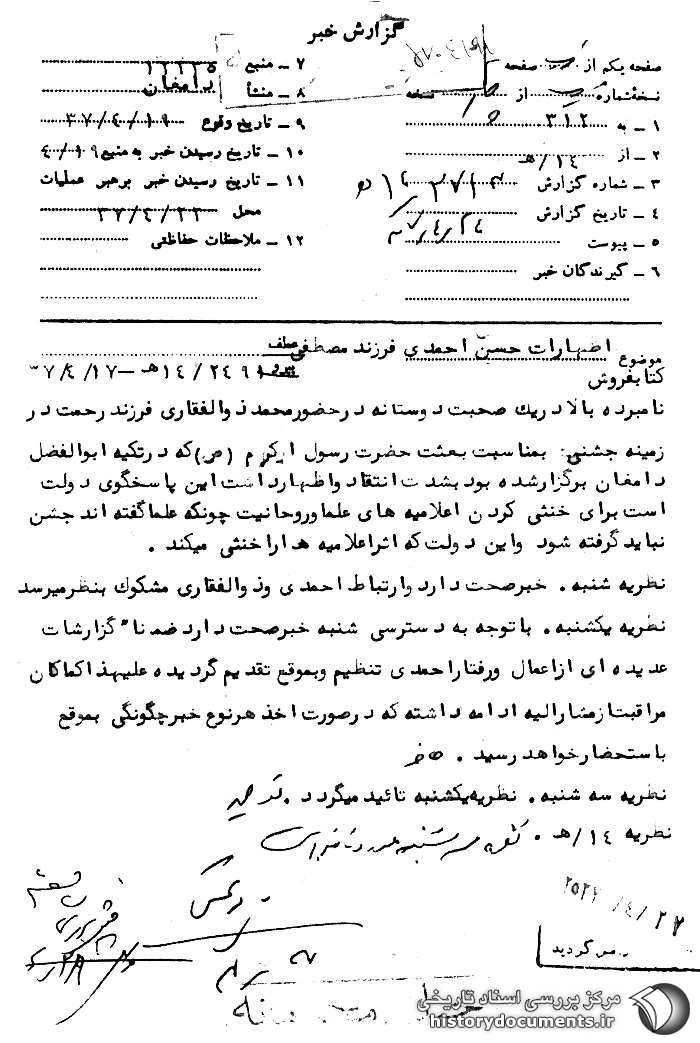 گزارش خبر
صفحه یکم از صفحه
نسخه شماره از نسخه
۱ ـ به ۳۱۲
۲ ـ از ۱۴/هـ
۳ ـ شماره گزارش
۴ ـ تاریخ گزارش
۵ ـ پیوست
۶ ـ گیرندگان خبر
۷ ـ منبع
۸ ـ منشأ دامغان
۹ ـ تاریخ وقوع ۳۷/۴/۱۹
۱۰ ـ تاریخ رسیدن خبر به منبع ۴/۱۹
۱۱ ـ تاریخ رسیدن خبر برهبر عملیات
محل ۳۷/۴/۲۲
۱۲ ـ ملاحظات حفاظتی
موضوع اظهارات حسن احمدی فرزند مصطفی
کتابفروش
عطف
۲۴۹۱/۱۴هـ ـ ۳۷/۴/۱۷
نامبرده بالا در یك صحبت دوستانه در حضور محمد ذوالفقاری فرزند رحمت در
زمینه جشنی بمناسبت بعثت حضرت رسول اکرم (ص) که در تکیه ابوالفضل
دامغان برگزار شده بود بشدت انتقاد و اظهار داشت این پاسخگوی دولت
است برای خنثی کردن اعلامیه های علما و روحانیت چونکه علما گفته اند جشن
نباید گرفته شود و این دولت که اثر اعلامیه ها را خنثی میکند .
نظریه شنبه . خبر صحت دارد و ارتباط احمدی و ذوالفقاری مشکوك بنظر میرسد
نظریه یکشنبه . با توجه به دسترسی شنبه خبر صحت دارد ضمناً گزارشات
عدیده ای از اعمال و رفتار احمدی تنظیم و بموقع تقدیم گردیده علیهذا کماکان
مراقبت از مشارالیه ادامه داشته که در صورت اخذ هر نوع خبر چگونگی بموقع
باستحضار خواهد رسید .
نظریه سه شنبه . نظریه یکشنبه تائید میگردد .
نظریه ۱۴/هـ .
۲۵۳۷/۴/۲۷
گردید
مرکز بررسی اسناد تاریخی
historydocuments.ir